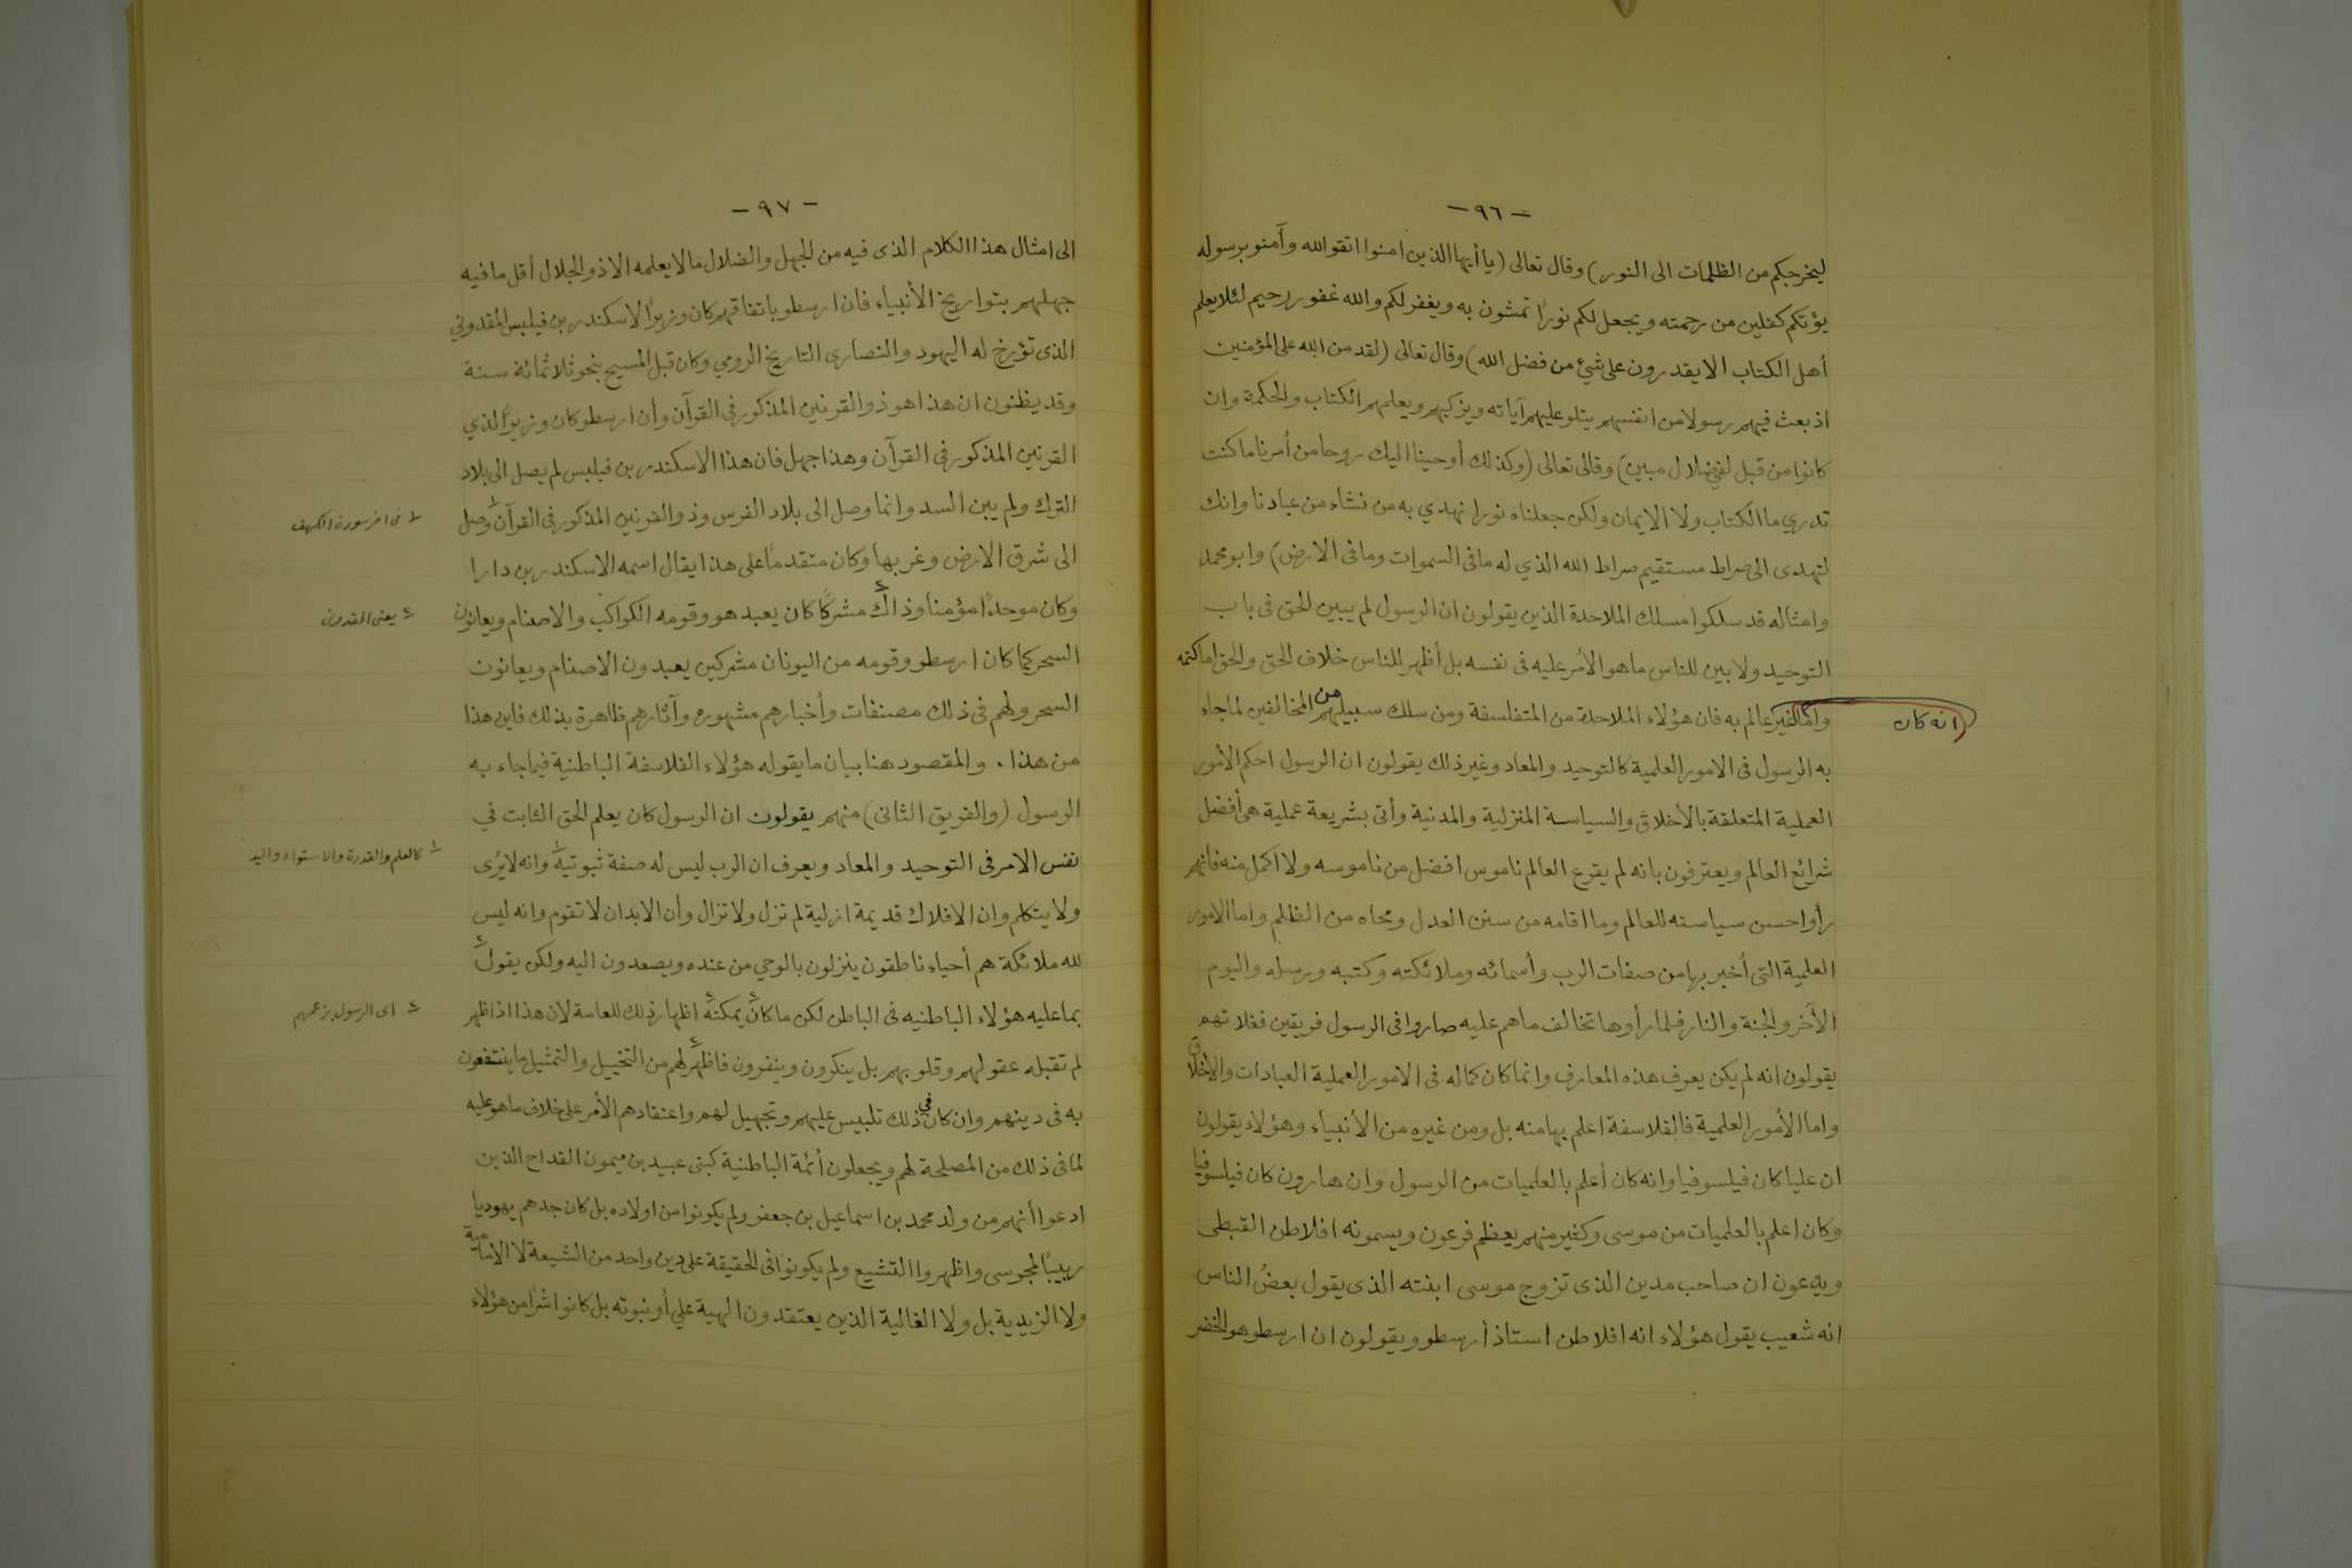 - ٩٦ -
ليخرجكم من الظلمات الى النور) وقال تعالى (يا أيها الذين امنوا اتقوالله وآمنو برسوله
يؤتكم كفلين من رحمته ويجعل لكم نورًا تمشون به ويغفر لكم والله غفور رحيم لئلا يعلم
أهل الكتاب الا يقدرون على شيئ من فضل الله) وقال تعالى (لقد من الله على المؤمنين
اذ بعث فيهم رسولا من انفسهم يتلو عليهم آياته ويزكيهم ويعلمهم الكتاب والحكمة وان
كانوا من قبل لفي ضلال مبين) وقال تعالى (وكذلك أوحينا اليك روحا من أمرنا ما كنت
تدري ما الكتاب ولا الايمان ولكن جعلناه نورا نهدي به من نشاء من عبادنا وانك
لتهدى الى صراط مستقيم صراط الله الذي له ما فى السموات وما فى الارض) وابو محمد
وامثاله قد سلكوا مسلك الملاحدة الذين يقولون ان الرسول لم يبين الحق فى باب
التوحيد ولا بين للناس ما هو الأمر عليه فى نفسه بل أظهر للناس خلاف الحق والحق اما كتمه
واما انه كان غير عالم به فان هؤلاء الملاحدة من المتفلسفة ومن سلك سبيلهم من المخالفين لما جاء
به الرسول فى الامور العلمية كالتوحيد والمعاد وغير ذلك يقولون ان الرسول احكم الأمور
العملية المتعلقة بالأخلاق والسياسة المنزلية والمدنية وأتى بشريعة عملية هى أفضل
شرائع العالم ويعترفون بانه لم يقرع العالم ناموس افضل من ناموسه ولا اكمل منه فانهم
رأوا حسن سياسته للعالم وما اقامه من سنن العدل ومحاه من الظلم واما الامور
العلمية التى أخبر بها من صفات الرب وأسمائه وملائكته وكتبه ورسله واليوم
الآخر والجنة والنار فلما رأوها تخالف ما هم عليه صاروا فى الرسول فريقين فغلاتهم
يقولون انه لم يكن يعرف هذه المعارف وانما كان كماله فى الامور العملية العبادات والاخلاق
واما الأمور العلمية فالفلاسفة اعلم بها منه بل ومن غيره من الأنبياء وهؤلاء يقولون
ان عليا كان فيلسوفيا وانه كان أعلم بالعلميات من الرسول وان هارون كان فيلسوفيا
وكان اعلم بالعلميات من موسى وكثير منهم يعظم فرعون ويسمونه افلاطن القبطى
ويدعون ان صاحب مدين الذى تزوج موسى ابنته الذى يقول بعضُ الناس
انه شعيب يقول هؤلاء انه افلاطن استاذ أرسطو ويقولون ان ارسطو هو الخضر
- ٩٧ -
الى امثال هذا الكلام الذى فيه من الجهل والضلال ما لا يعلمه الا ذو الجلال أقل ما فيه
جهلهم بتواريخ الأنبياء فان ارسطو باتفاقهم كان وزيرًا لاسكندر بن فيلبس المقدوني
الذى تؤرخ له اليهود والنصارى التاريخ الرومي وكان قبل المسيح بنحو ثلاثمائة سنة
وقد يظنون ان هذا هو ذو القرنين المذكور فى القرآن وأن ارسطو كان وزيرًا لذي
القرنين المذكور فى القرآن وهذا جهل فان هذا الاسكندر بن فيلبس لم يصل الى بلاد
الترك ولم يبن السد وانما وصل الى بلاد الفرس وذو القرنين المذكور فى القرآن١ وصل
١ فى اخر سورة الكهف
الى شرق الارض وغربها وكان متقدمًا على هذا يقال اسمه الاسكندر بن دارا
وكان موحدًا مؤمنا وذاك٢ مشركًا كان يعبد هو وقومه الكواكب والاصنام ويعانون
٢ يعنى المقدونى
السحر كما كان ارسطو وقومه من اليونان مشركين يعبدون الاصنام ويعانون
السحر ولهم فى ذلك مصنفات وأخبارهم مشهوره وآثارهم ظاهرة بذلك فاين هذا
من هذا . والمقصود هنا بيان ما يقوله هؤلاء الفلاسفة الباطنية فيما جاء به
الرسول (والفريق الثانى) منهم يقولون ان الرسول كان يعلم الحق الثابت في
نفس الامر فى التوحيد والمعاد ويعرف ان الرب ليس له صفة ثبوتية١ وانه لا يُرى
١ كالعلم والقدرة والاستواء واليد
ولا يتكلم وان الافلاك قديمة ازلية لم تزل ولا تزال وأن الابدان لا تقوم وانه ليس
لله ملائكة هم أحياء ناطقون ينزلون بالوحي من عنده ويصعدون اليه ولكن يقول٢
بما عليه هؤلاء الباطنيه فى الباطن لكن ما كان٢ يمكنه٢ اظهار ذلك للعامة لان هذا اذا ظهر
٢ اى الرسول بزعمهم
لم تقبله عقولهم وقلوبهم بل ينكرون وينفرون فاظهر٢ لهم من التخييل والتمثيل ما ينتفعون
به فى دينهم وان كان في ذلك تلبيس عليهم وتجهيل لهم واعتقادهم الأمر على خلاف ما هو عليه
لما فى ذلك من المصلحة لهم ويجعلون أئمة الباطنية كبنى عبيد بن ميمون القداح الذين
ادعوا أنهم من ولد محمد بن اسماعيل بن جعفر ولم يكونوا من اولاده بل كان جدهم يهوديا
ربيبًا لمجوسى واظهروا التشيع ولم يكونوا فى الحقيقة على دين واحد من الشيعة لا الامامية
ولا الزيدية بل ولا الغالية الذين يعتقدون الهية علي أو نبوته بل كانوا شرا من هؤلاء